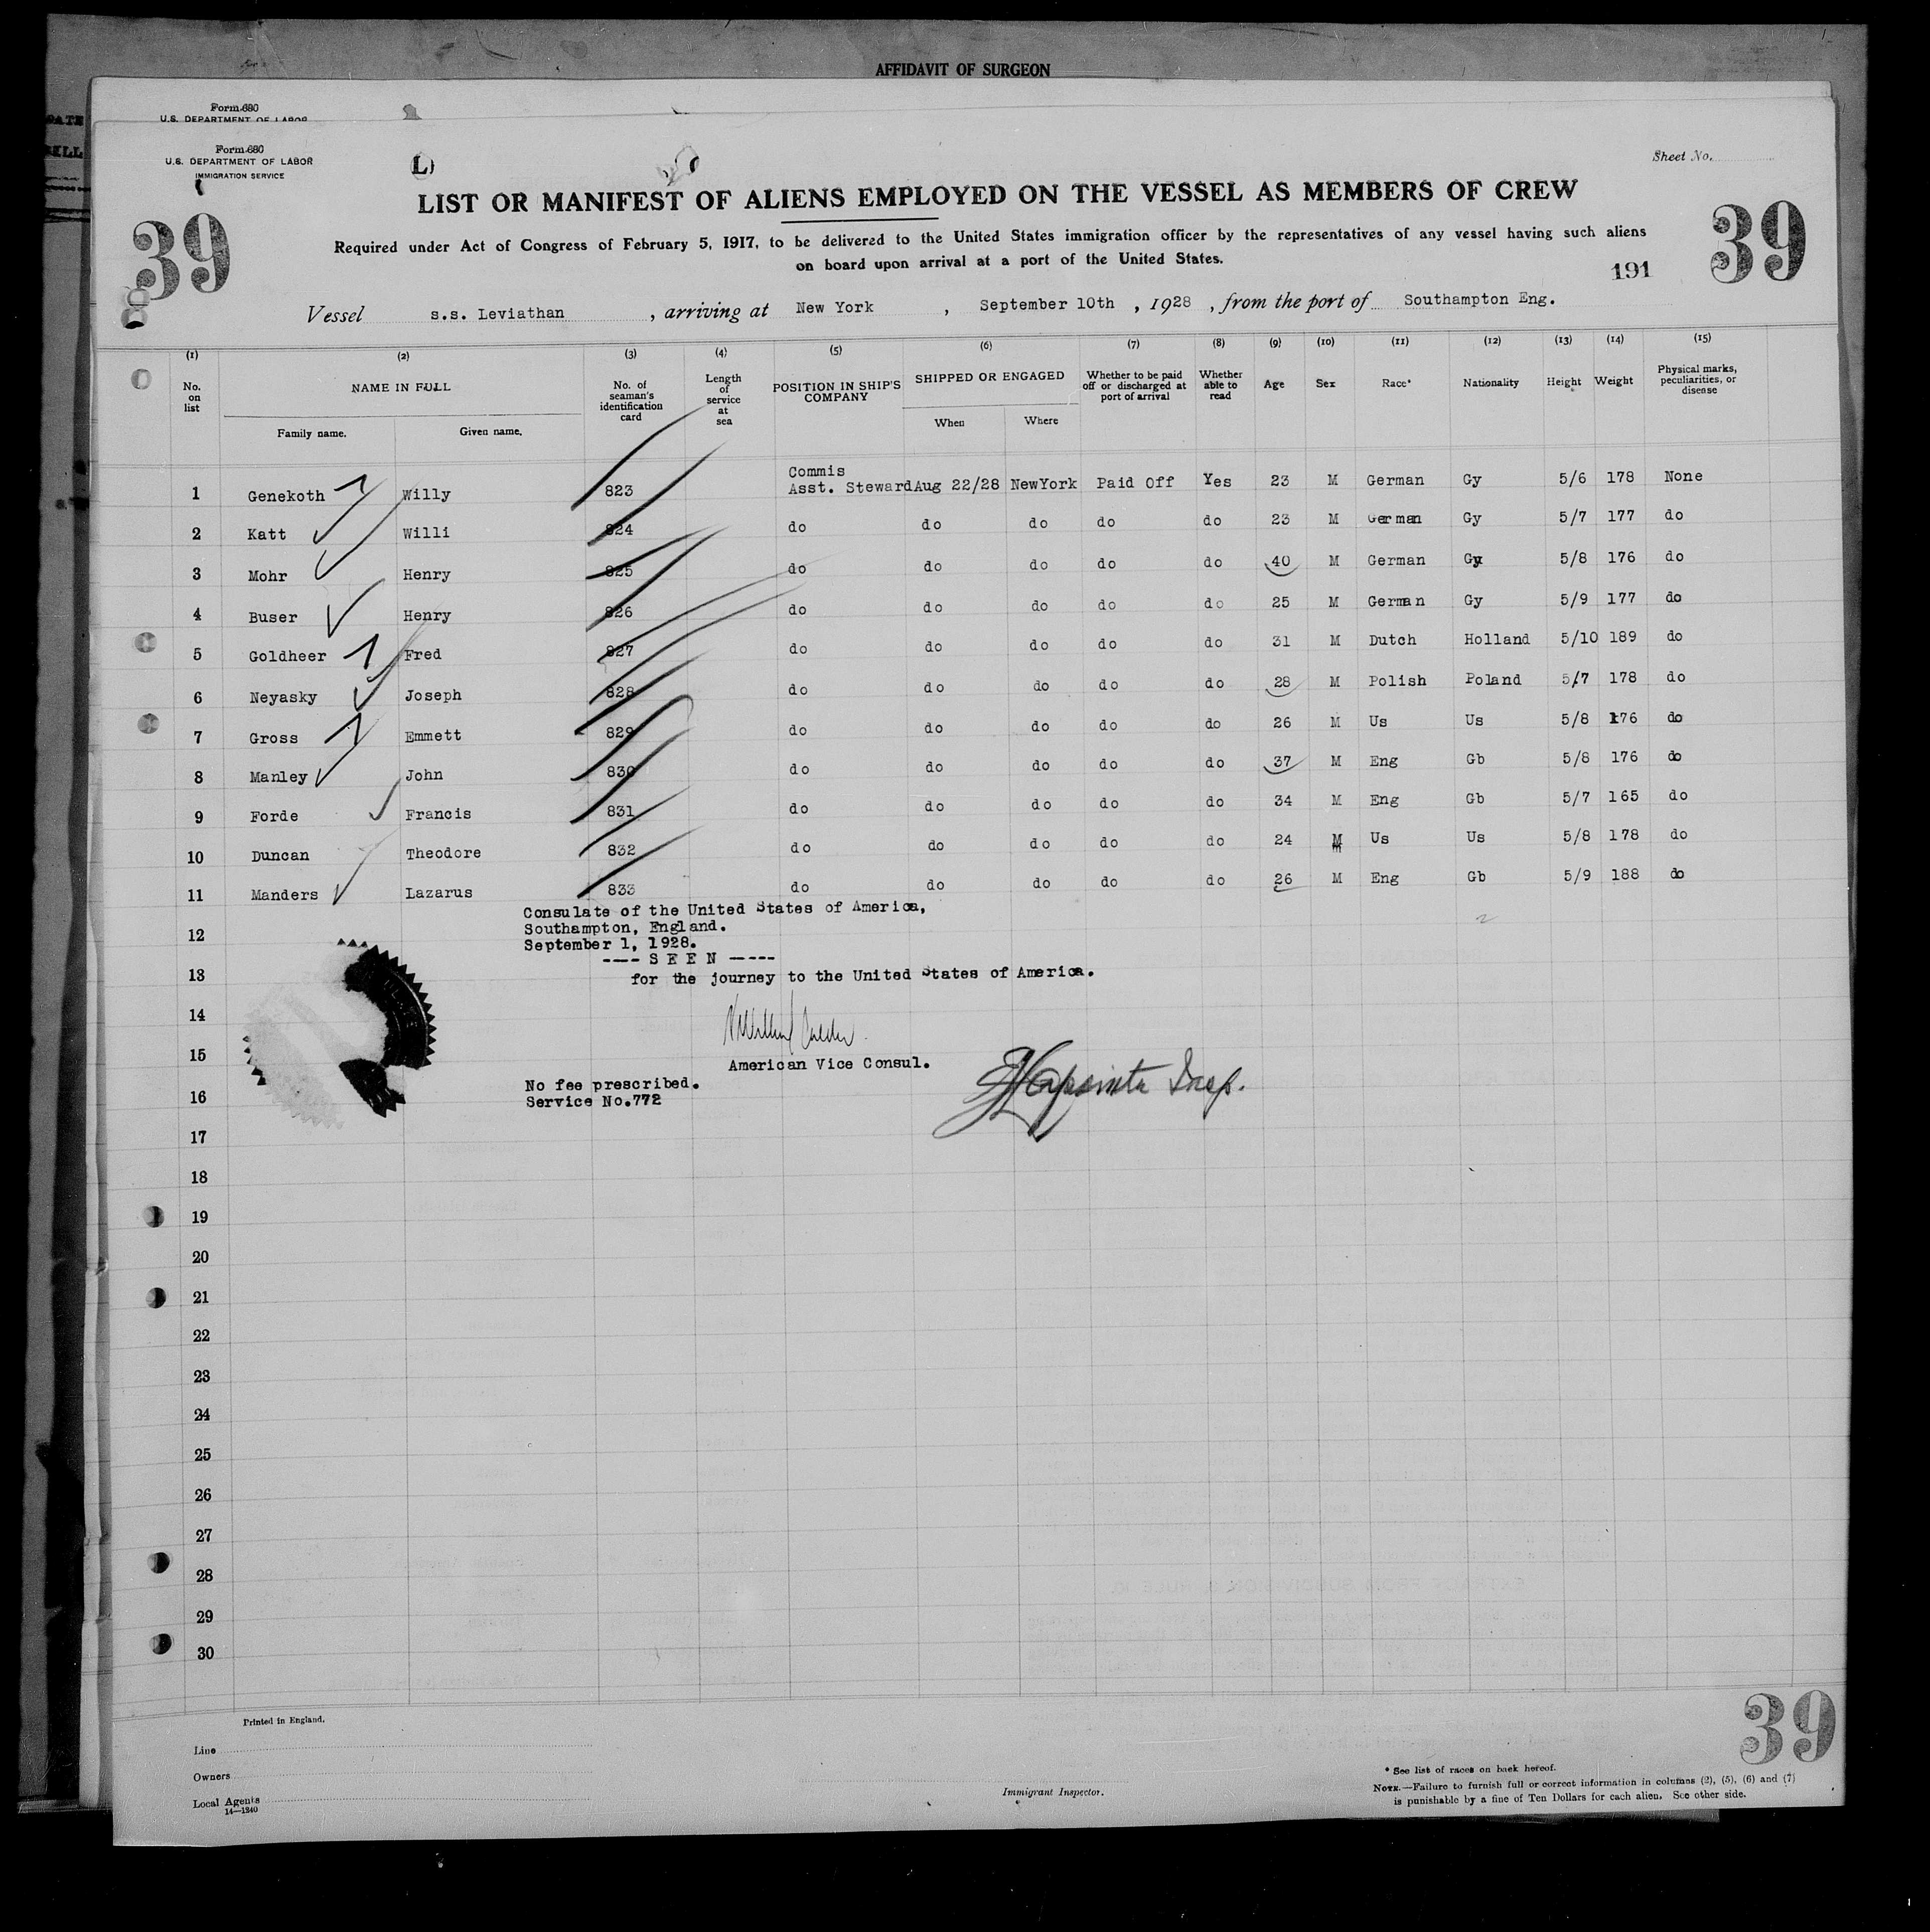 AFFIDAVIT OF SURGEON
Form 680
U.S. DEPARTMENT OF LABOR
Form 680
U.S. DEPARTMENT OF LABOR
IMMIGRATION SERVICE
Sheet No.
LIST OR MANIFEST OF ALIENS EMPLOYED ON THE VESSEL AS MEMBERS OF CREW
39 39
Required under Act of Congress of February 5, 1917, to be delivered to the United States immigration officer by the representatives of any vessel having such aliens
on board upon arrival at a port of the United States.
191
Vessel s.s. Leviathan , arriving at New York , September 10th , 1928 , from the port of Southampton Eng.
(1) (2) (3) (4) (5) (6) (7) (8) (9) (10) (11) (12) (13) (14) (15)
No. on list NAME IN FULL No. of seaman's identification card Length of service at sea POSITION IN SHIP'S COMPANY SHIPPED OR ENGAGED Whether to be paid off or discharged at port of arrival Whether able to read Age Sex Race* Nationality Height Weight Physical marks, peculiarities, or disease
Family name. Given name. When Where
1 Genekoth Willy 823 Commis Asst. Steward Aug 22/28 NewYork Paid Off Yes 23 M German Gy 5/6 178 None
2 Katt Willi 824 do do do do do 23 M German Gy 5/7 177 do
3 Mohr Henry 825 do do do do do 40 M German Gy 5/8 176 do
4 Buser Henry 826 do do do do do 25 M German Gy 5/9 177 do
5 Goldheer Fred 827 do do do do do 31 M Dutch Holland 5/10 189 do
6 Neyasky Joseph 828 do do do do do 28 M Polish Poland 5/7 178 do
7 Gross Emmett 829 do do do do do 26 M Us Us 5/8 176 do
8 Manley John 830 do do do do do 37 M Eng Gb 5/8 176 do
9 Forde Francis 831 do do do do do 34 M Eng Gb 5/7 165 do
10 Duncan Theodore 832 do do do do do 24 M Us Us 5/8 178 do
11 Manders Lazarus 833 do do do do do 26 M Eng Gb 5/9 188 do
Consulate of the United States of America,
12 Southampton, England.
September 1, 1928.
---- S E E N -----
13 for the journey to the United States of America.
14
15
American Vice Consul.
Insp.
No fee prescribed.
16 Service No.772
17
18
19
20
21
22
23
24
25
26
27
28
29
30
39
Printed in England.
Line
Owners
Local Agents
14—1240
Immigrant Inspector.
* See list of races on back hereof.
NOTE.—Failure to furnish full or correct information in columns (2), (5), (6) and (7)
is punishable by a fine of Ten Dollars for each alien. See other side.